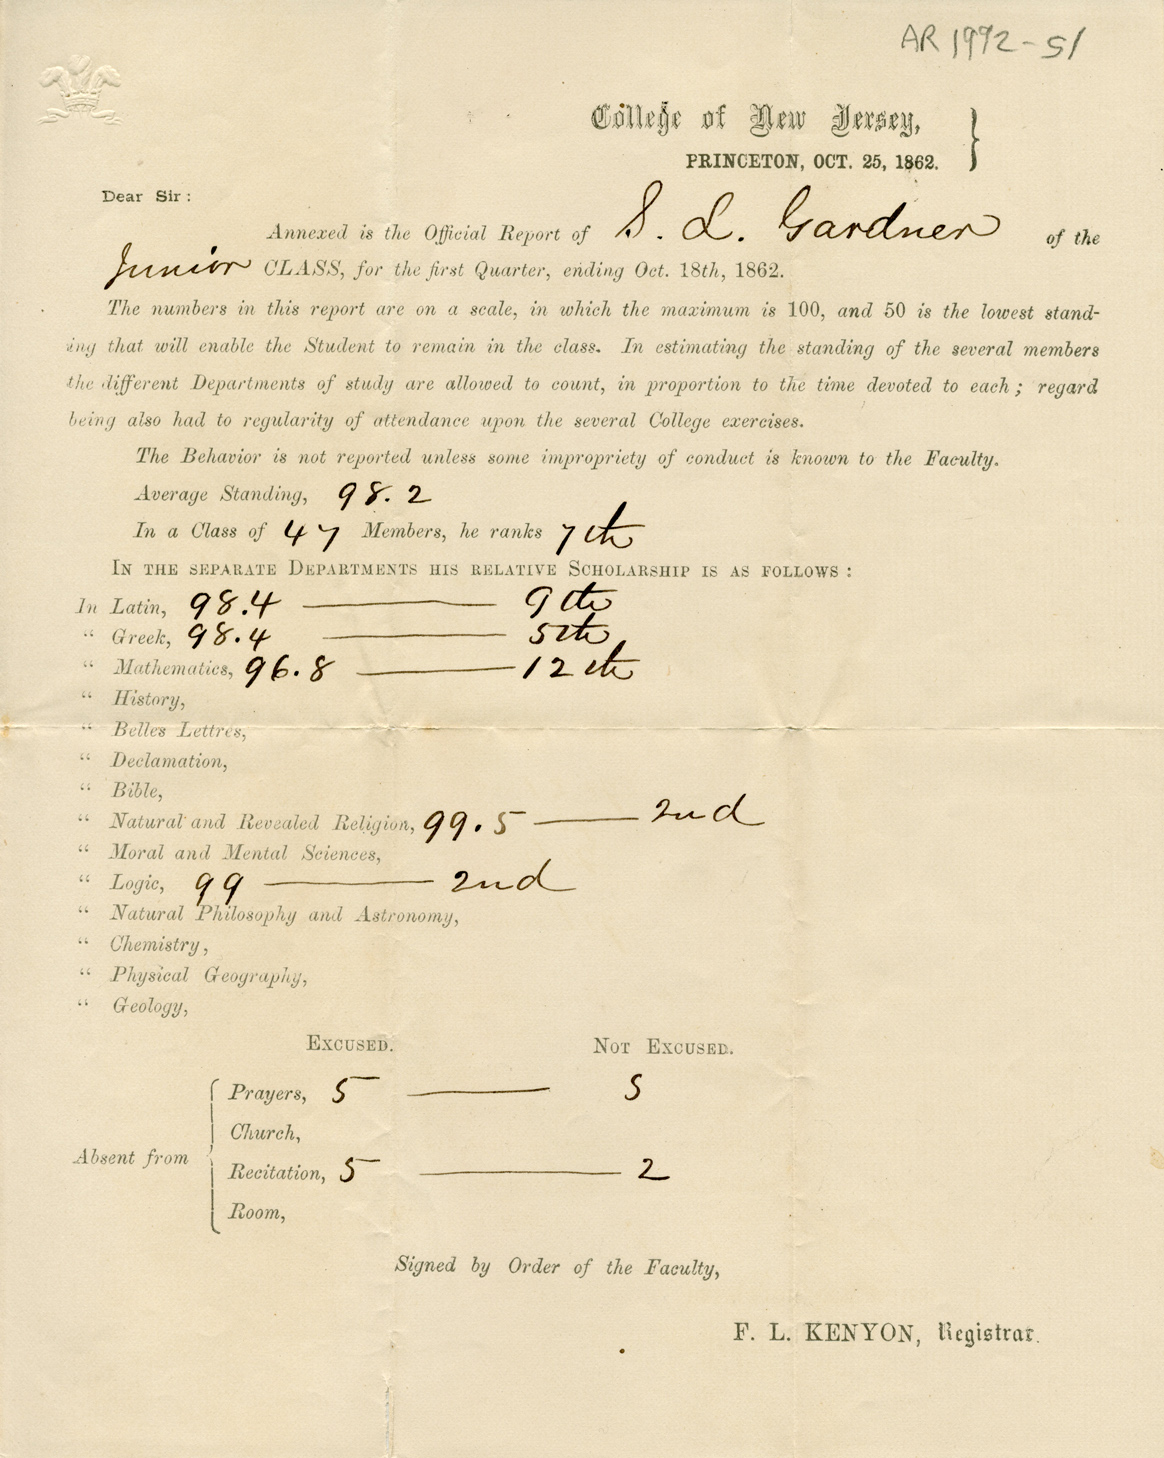 AR 1992-51
College of New Jersey,
PRINCETON, OCT. 25, 1862.
Dear Sir:
Annexed is the Official Report of S. L. Gardner of the
Junior CLASS, for the first Quarter, ending Oct. 18th, 1862.
The numbers in this report are on a scale, in which the maximum is 100, and 50 is the lowest stand-
ing that will enable the Student to remain in the class. In estimating the standing of the several members
the different Departments of study are allowed to count, in proportion to the time devoted to each; regard
being also had to regularity of attendance upon the several College exercises.
The Behavior is not reported unless some impropriety of conduct is known to the Faculty.
Average Standing, 98.2
In a Class of 47 Members, he ranks 7th
IN THE SEPARATE DEPARTMENTS HIS RELATIVE SCHOLARSHIP IS AS FOLLOWS:
In Latin, 98.4 — 9th
“ Greek, 98.4 — 5th
“ Mathematics, 96.8 — 12th
“ History,
“ Belles Lettres,
“ Declamation,
“ Bible,
“ Natural and Revealed Religion, 99.5 — 2nd
“ Moral and Mental Sciences,
“ Logic, 99 — 2nd
“ Natural Philosophy and Astronomy,
“ Chemistry,
“ Physical Geography,
“ Geology,
EXCUSED. NOT EXCUSED.
Prayers, 5 — 5
Church,
Absent from
Recitation, 5 — 2
Room,
Signed by Order of the Faculty,
F. L. KENYON, Registrar.